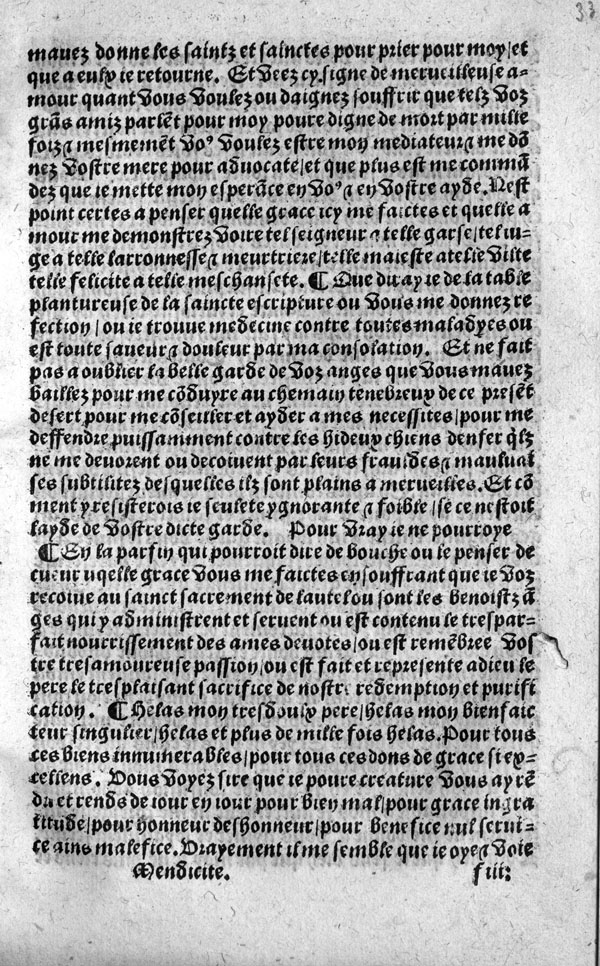 33
mauez donne les saintz et sainctes pour prier pour moy/et
que a eulx ie retourne. Et veez cy signe de merueilleuse a-
mour quant vous voulez ou daignez souffrir que telz voz
grãs amiz parlẽt pour moy poure digne de mort par mille
foiz ⁊ mesmemẽt voꝰ voulez estre moy mediateur ⁊ me dõ
nez vostre mere pour aduocate/et que plus est me commã
dez que ie mette moy esperãce en voꝰ ⁊ en vostre ayde. Nest
point certes a penser quelle grace icy me faictes et quelle a
mour me demonstrez voire tel seigneur a telle garse/tel iu-
ge a telle larronnesse ⁊ meurtriere/telle maieste a telle vilte
telle felicite a telle meschansete. ¶ Que diray ie de la table
plantureuse de la saincte escripture ou vous me donnez re
fection/ou ie trouue medecine contre toutes maladyes ou
est toute saueur ⁊ douleur par ma consolation. Et ne fait
pas a oublier la belle garde de voz anges que vous mauez
baillez pour me cõduyre au chemain tenebreux de ce presẽt
desert pour me cõseiller et ayder a mes necessites/pour me
deffendre puissamment contre les hideux chiens denfer q̃lz
ne me deuorent ou decoiuent par leurs fraudes ⁊ mauual
ses subtilitez desquelles ilz sont plains a merueilles. Et cõ
ment y resisterois ie seulete ygnorante ⁊ foible/se ce nestoit
layde de vostre dicte garde. Pour vray ie ne pourroye
¶ En la parfin qui pourroit dire de bouche ou le penser de
cueur uqelle grace vous me faictes en souffrant que ie voz
recoiue au sainct sacrement de lautel ou sont les benoistz ã
ges qui y administrent et seruent ou est contenu le trespar-
fait nourrissement des ames deuotes/ou est remẽbree vos
tre tresamoureuse passion/ou est fait et represente a dieu le
pere le tresplaisant sacrifice de nostre redemption et purifi
cation. ¶ Helas mon tresdoulx pere/helas moy bienfaic
teur singulier/helas et plus de mille fois helas. Pour tous
ces biens innumerables/pour tous ces dons de grace si ex-
cellens. Vous voyez sire que ie poure creature vous ay rẽ
du et rends de iour en iour pour bien mal/pour grace ingra
titude/pour honneur deshonneur/pour benefice nul serui-
ce ains malefice. Vrayement il me semble que ie oye ⁊ voie
Mendicite. f iii: